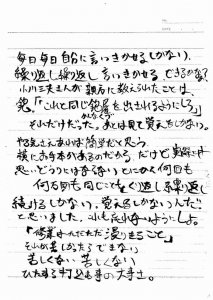 毎日毎日自分に言いきかせるしかない。
繰り返し繰り返し言いきかせるできるかな?
小川三夫さんが親方に教えられたことは、
鉋。「これと同じ鉋屑を出せれるようにしろ」
かんなくず
それだけだった。あとは見て覚えるしかない。
やる気さえあれば簡単だと思う。
横にお手本があるのだから だけど実際は
思いどうりにはならない とにかく何回も
何百回も同じことをくり返し繰り返し
続けるしかない、覚えるしかないんだ
と思いました。これも忘れないようにしよ。
「修業はただただ浸りきること」
それが苦しかったらできない
苦しくない 苦しくない
ひたすら打込む事の大事さ。